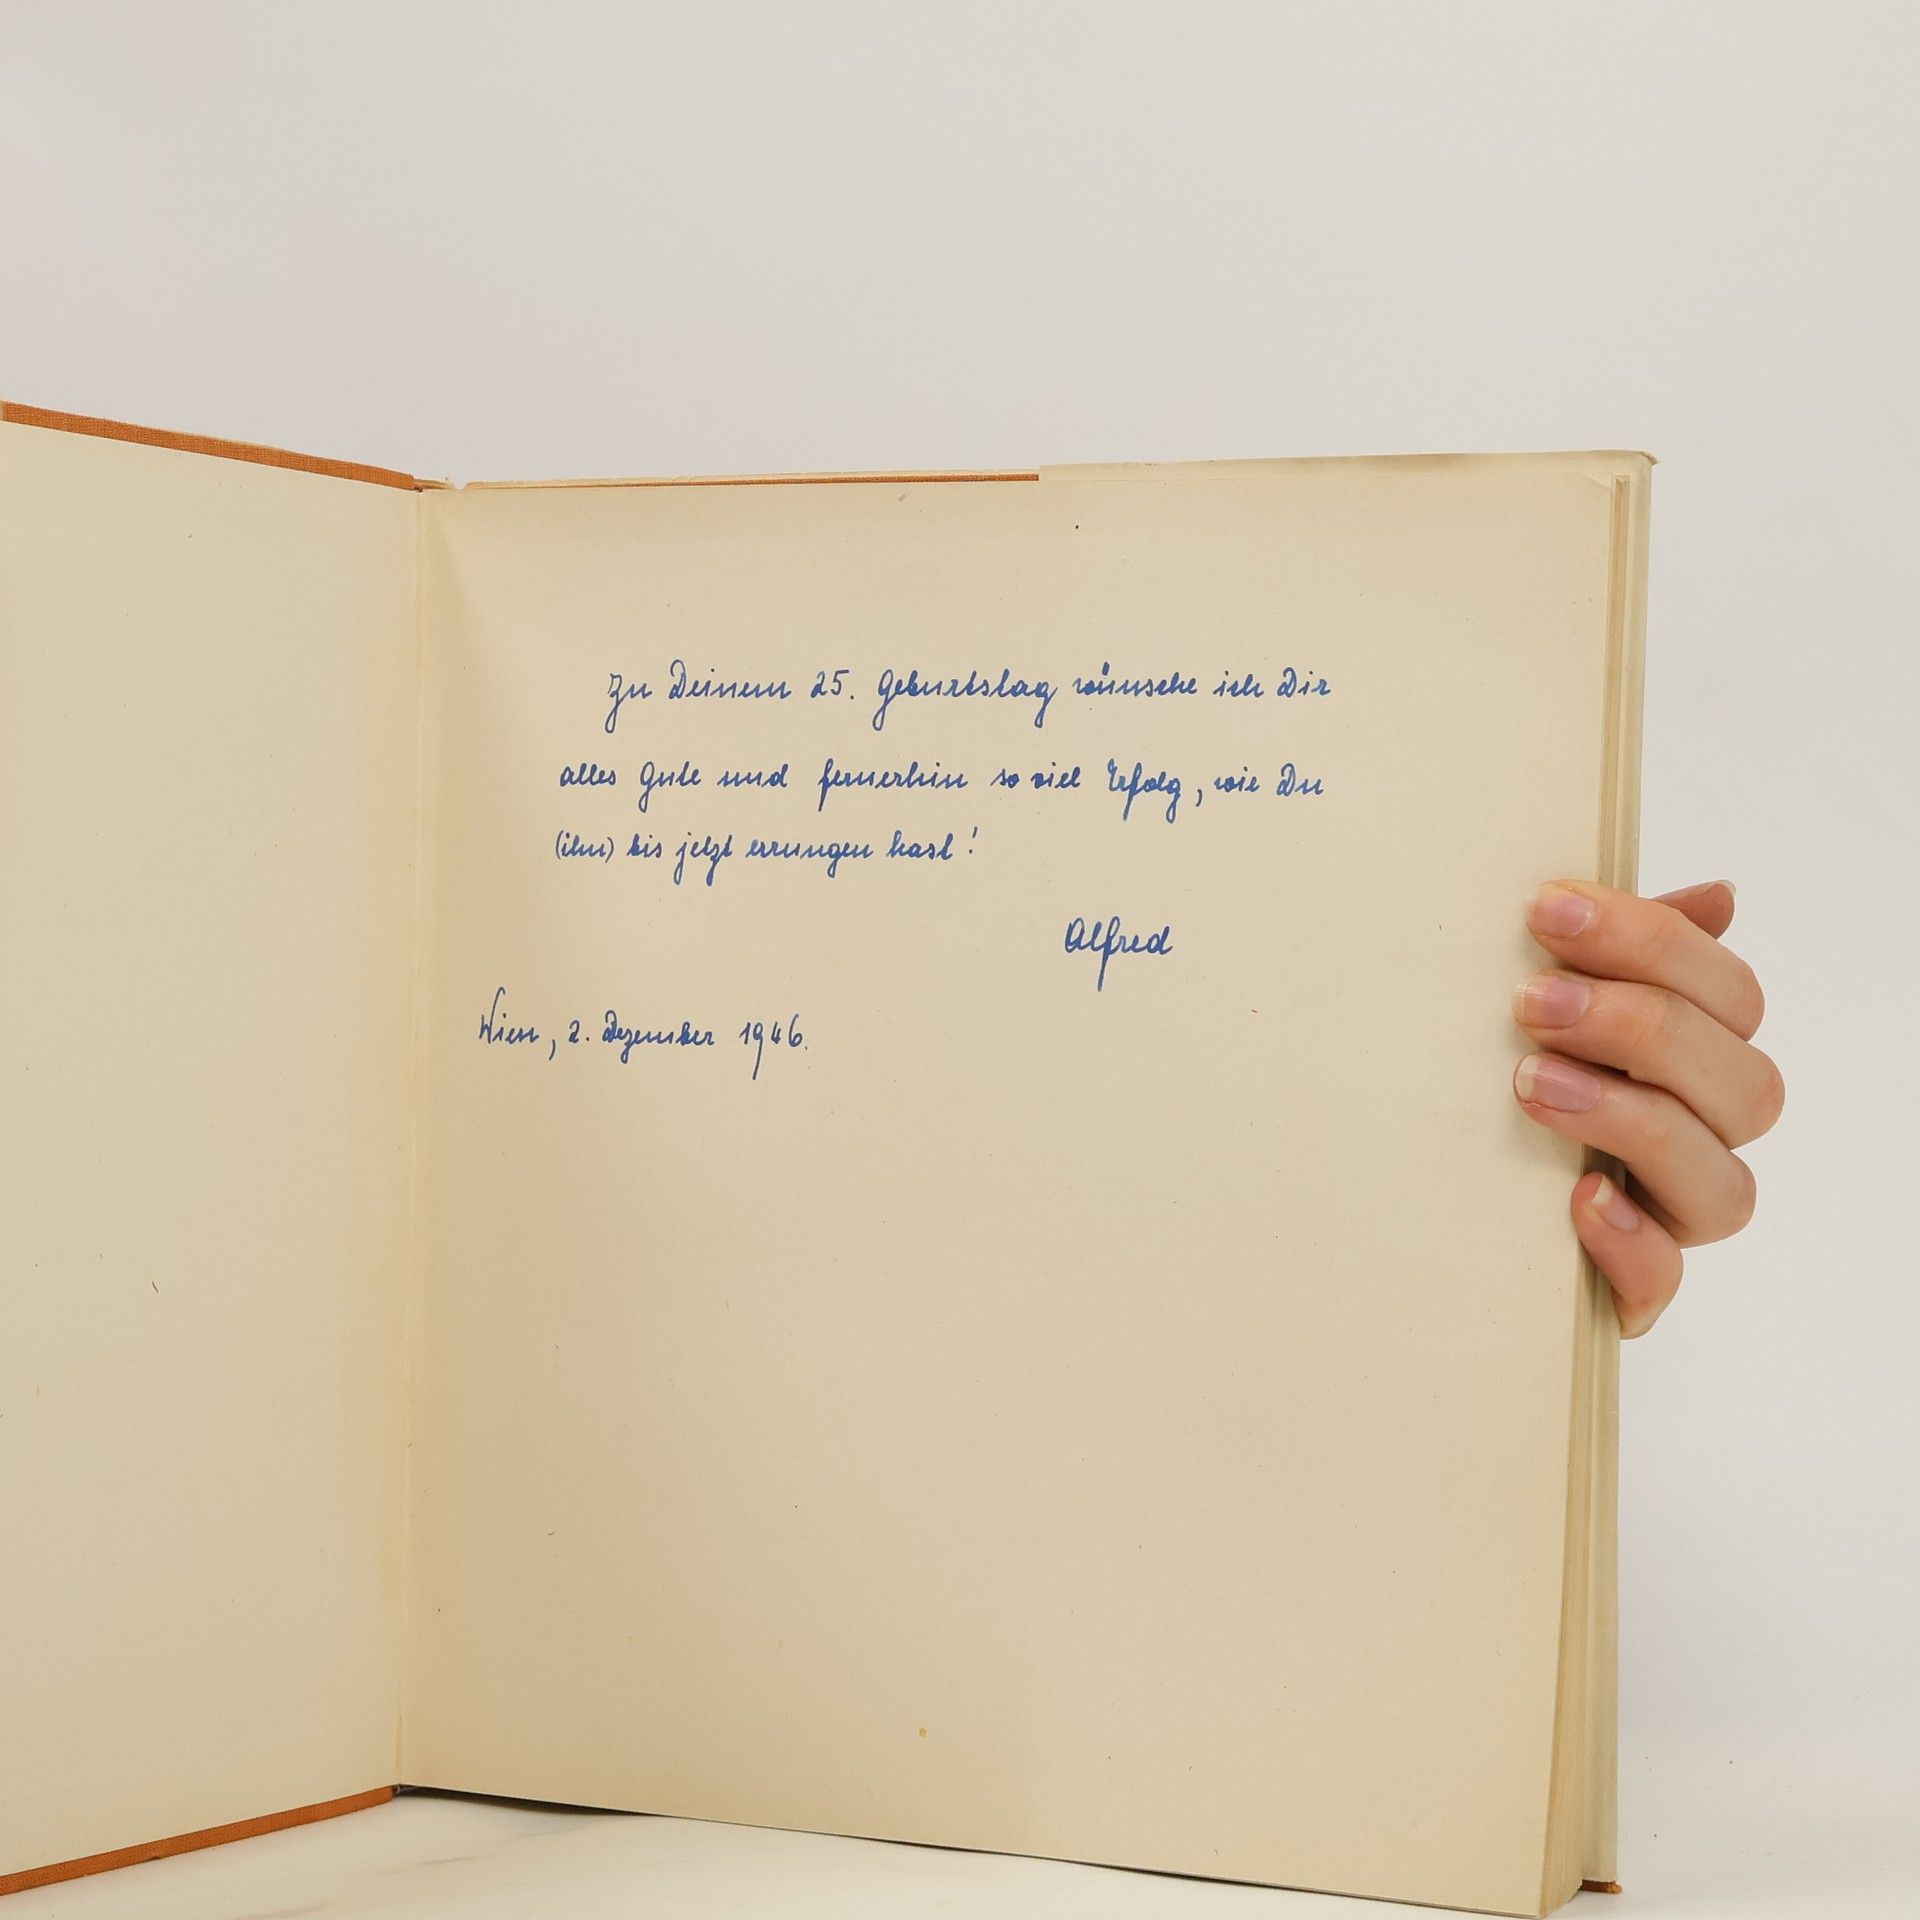 Zu Deinem 25. Geburtstag wünsche ich Dir
alles Gute und fernerhin so viel Erfolg, wie Du
(ihn) bis jetzt errungen hast!
Alfred
Wien, 2. Dezember 1946.